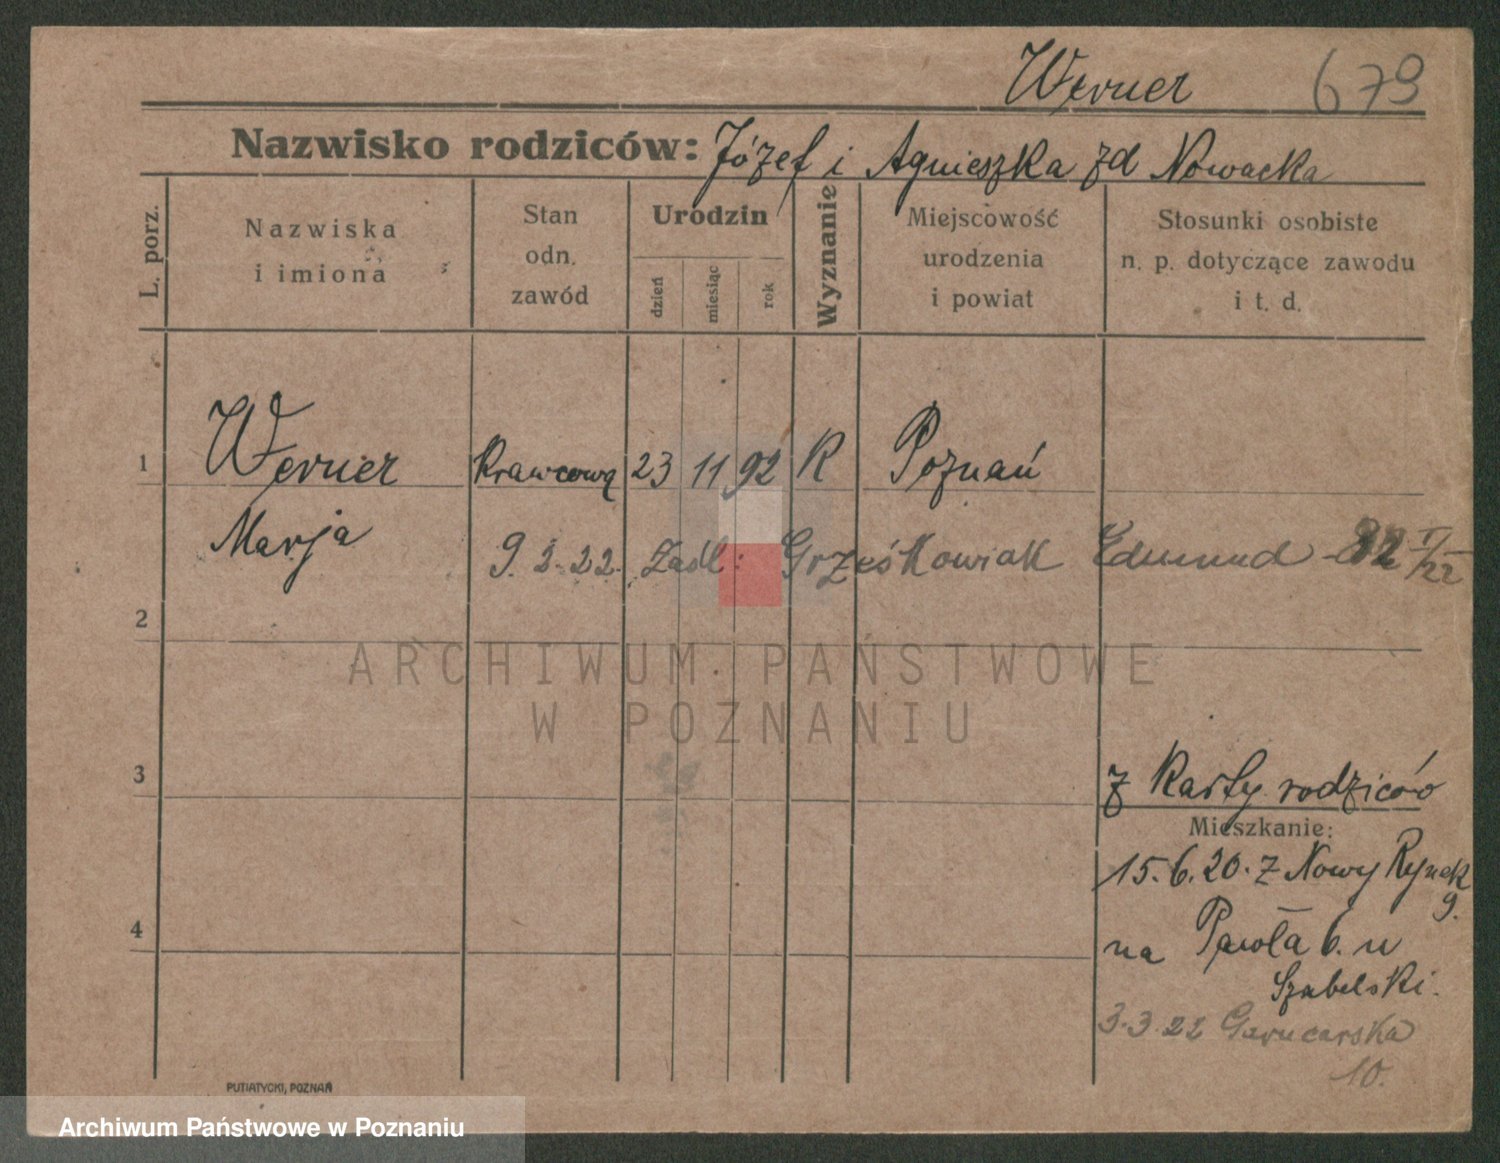 Werner 679
Nazwisko rodziców: Józef i Agnieszka zd Nowacka
L. porz.
Nazwiska
i imiona
Stan
odn.
zawód
Urodzin
dzień
miesiąc
rok
Wyznanie
Miejscowość
urodzenia
i powiat
Stosunki osobiste
n. p. dotyczące zawodu
i t. d.
1 Werner Krawcową 23 11 92 R Poznań
Marja 9. 2. 22. Zaśl: Grześkowiak Edmund
2
ARCHIWUM PAŃSTWOWE
W POZNANIU
3
z Karty rodziców
Mieszkanie:
15.6.20. z Nowy Rynek
9.
4
na Pawła 6. u
Szabelski.
3.3.22 Garncarska
10.
PUTIATYCKI, POZNAŃ
Archiwum Państwowe w Poznaniu